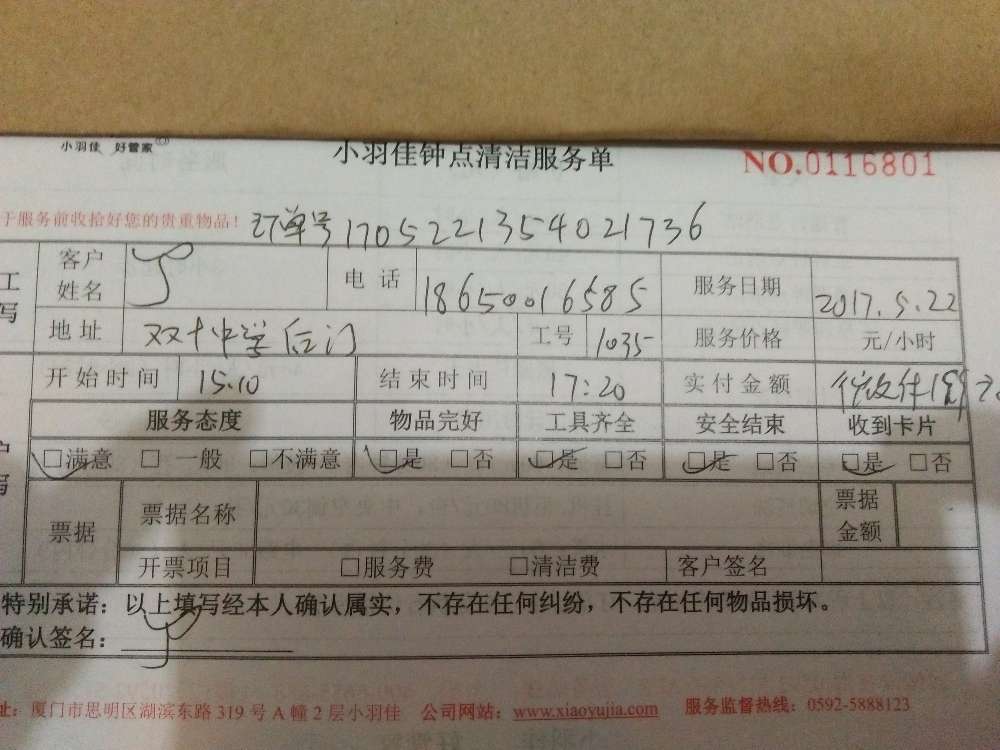 小羽佳 好管家
小羽佳钟点清洁服务单 NO.0116801
于服务前收拾好您的贵重物品! 订单号 1705221354021736
工 客户姓名 电话 18650016585 服务日期 2017.5.22
写 地址 双十中学后门 工号 1035 服务价格 元/小时
开始时间 15.10 结束时间 17:20 实付金额
服务态度 物品完好 工具齐全 安全结束 收到卡片
□满意 □一般 □不满意 □是 □否 □是 □否 □是 □否 □是 □否
写 票据 票据名称 票据金额
开票项目 □服务费 □清洁费 客户签名
特别承诺：以上填写经本人确认属实，不存在任何纠纷，不存在任何物品损坏。
确认签名：
址：厦门市思明区湖滨东路 319 号 A 幢 2 层小羽佳 公司网站：www.xiaoyujia.com 服务监督热线：0592-5888123